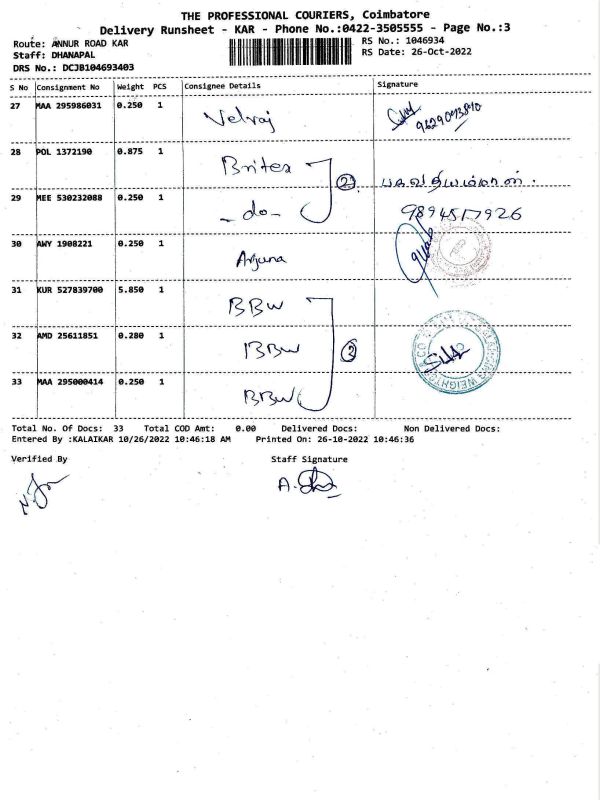 THE PROFESSIONAL COURIERS, Coimbatore
Delivery Runsheet - KAR - Phone No.:0422-3505555 - Page No.:3
Route: ANNUR ROAD KAR
Staff: DHANAPAL
DRS No.: DCJB104693403
RS No.: 1046934
RS Date: 26-Oct-2022
S No Consignment No Weight PCS Consignee Details Signature
27 MAA 295986031 0.250 1 Velraj
28 POL 1372190 0.875 1 Britex
29 MEE 530232088 0.250 1 -do- (2) 9894517926
30 AWY 1908221 0.250 1 Arjuna
31 KUR 527839700 5.850 1 BBW
32 AMD 25611851 0.280 1 BBW
33 MAA 295000414 0.250 1 BBW
Total No. Of Docs: 33 Total COD Amt: 0.00 Delivered Docs: Non Delivered Docs:
Entered By :KALAIKAR 10/26/2022 10:46:18 AM Printed On: 26-10-2022 10:46:36
Verified By Staff Signature